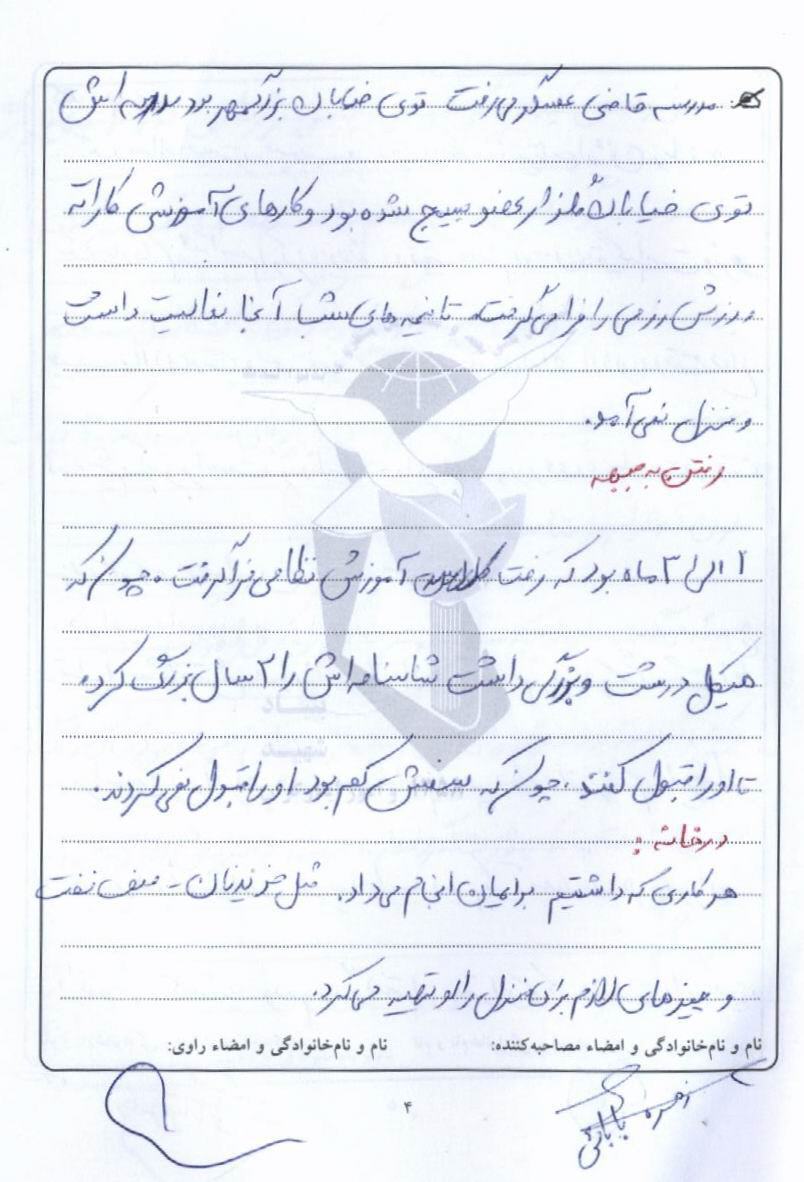 مدرسه قاضی عسگر می‌رفت توی خیابان بزرگمهر بود مدرسه اش
توی خیابان گلزار عضو بسیج شده بود و کارهای آموزشی کاراته
ورزش رزمی را فرا می‌گرفت. تا نیمه های شب آنجا فعالیت داشت
و منزل نمی آمد.
رفتن به جبهه
۲ الی ۳ ماه بود که رفت کلاس آموزش نظامی فرا گرفت. چون که
هیکل درشت و بزرگی داشت شناسنامه اش را ۲ سال بزرگ کرده
تا او را قبول کنند. چون که سنش کم بود او را قبول نمی کردند.
در خانه :
هر کاری که داشتیم برایمان انجام می داد. مثل خرید نان - نفت
و چیزهای لازم برای منزل را او تهیه می کرد.
نام و نام‌خانوادگی و امضاء مصاحبه‌کننده: نام و نام‌خانوادگی و امضاء راوی:
زهره بابائی
۴